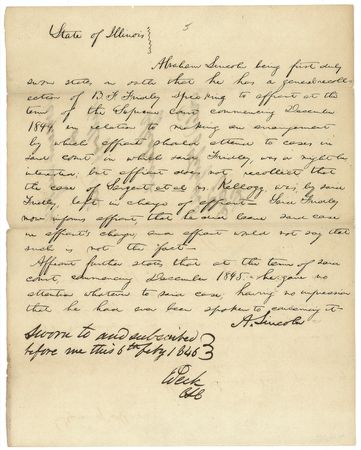 State of Illinois
Abraham Lincoln being first duly
sworn states on oath that he has a general recoll-
ection of B. F. Fridley speaking to affiant at the
term of the Supreme court commencing December
1844, in relation to making an arrangement
by which affiant should attend to cases in
said court in which said Fridley, was or might be
interested; but affiant does not recollect that
the case of Sargent et al vs Kellogg was, by said
Fridley, left in charge of affiant — Said Fridley
now informs affiant, that he did leave said case
in affiant's charge, and affiant would not say that
such is not the fact—
Affiant further states that at the term of said
court, commencing December 1845 he gave no
attention whatever to said case, having no impression
that he had ever been spoken to concerning it.
A. Lincoln
Sworn to and subscribed
before me this 6th Feby 1846
Peck
Clk